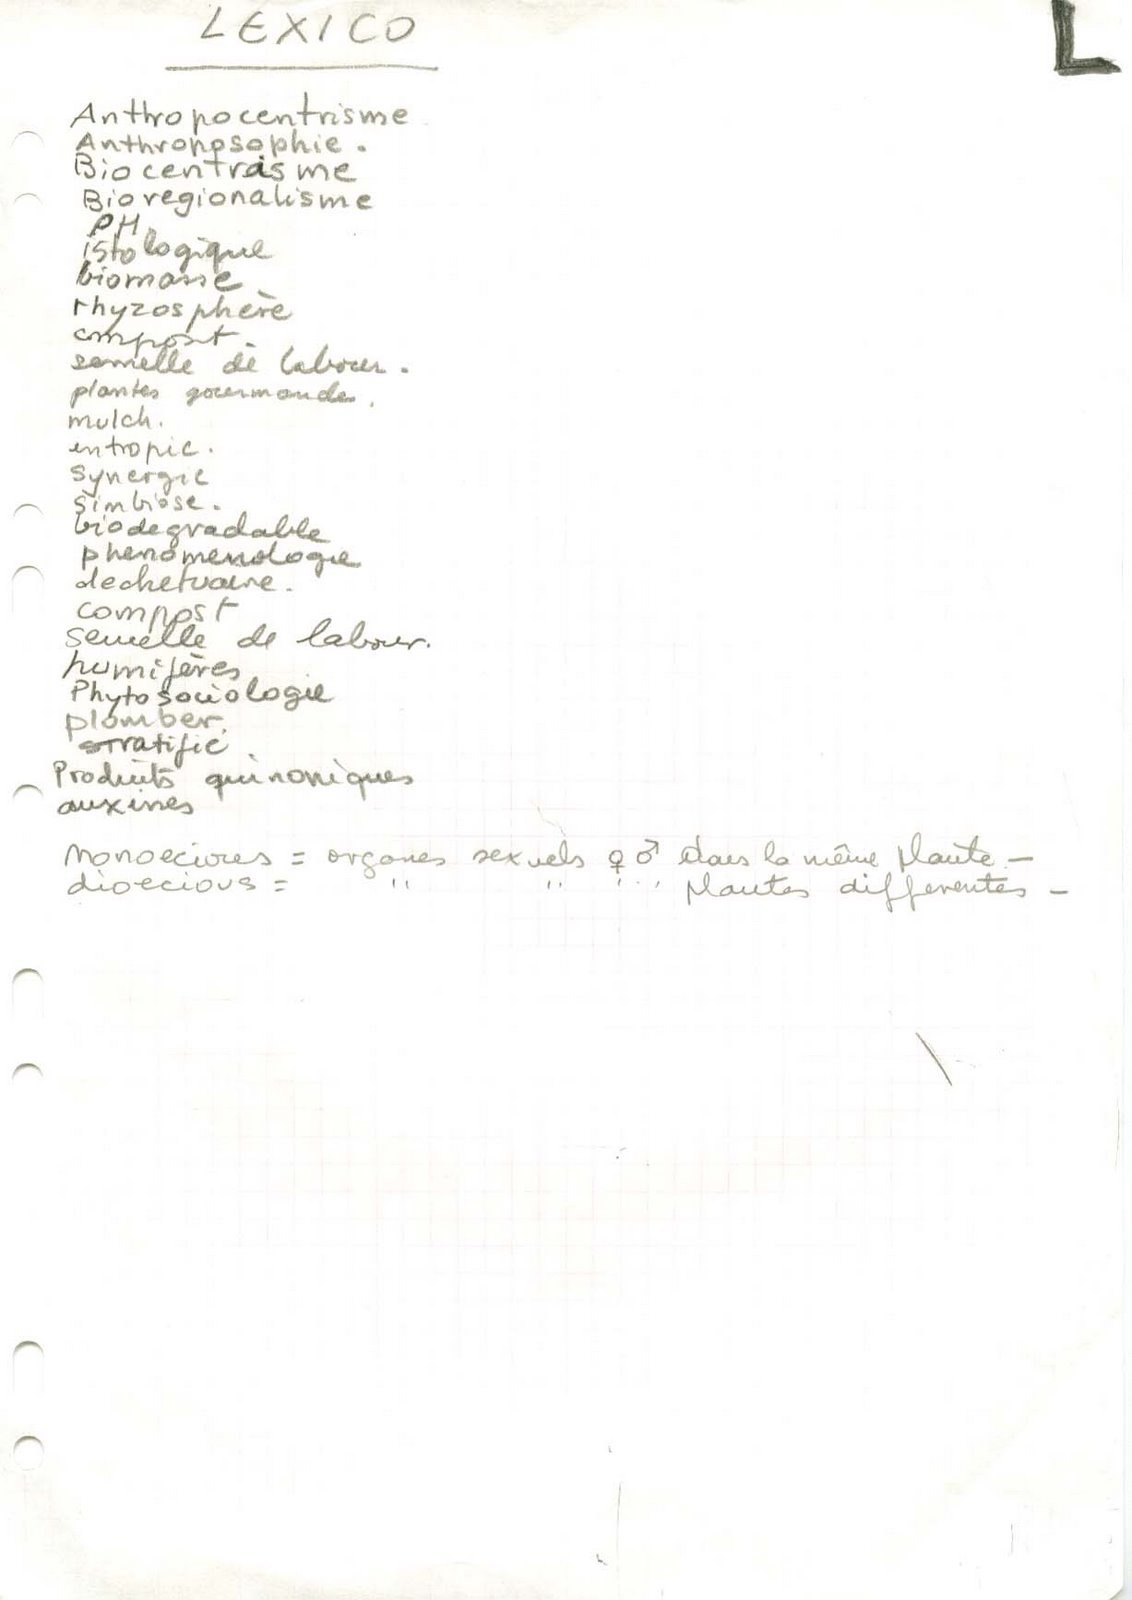 LEXICO
L
Anthropocentrisme
Anthroposophie.
Biocentrisme
Bioregionalisme
PH
istologique
biomasse
rhyzosphère
compost.
semelle de labour.
plantes gourmandes.
mulch.
entropie.
Synergie
Simbiose.
biodegradable
phenomenologie
dechetuaire.
compost
semelle de labour.
humifères
Phytosociologie
plomber.
stratifié
Produits quinoniques
auxines
Monoecious = organes sexuels ♀ ♂ dans la même plante -
dioecious = " " " plantes differentes -